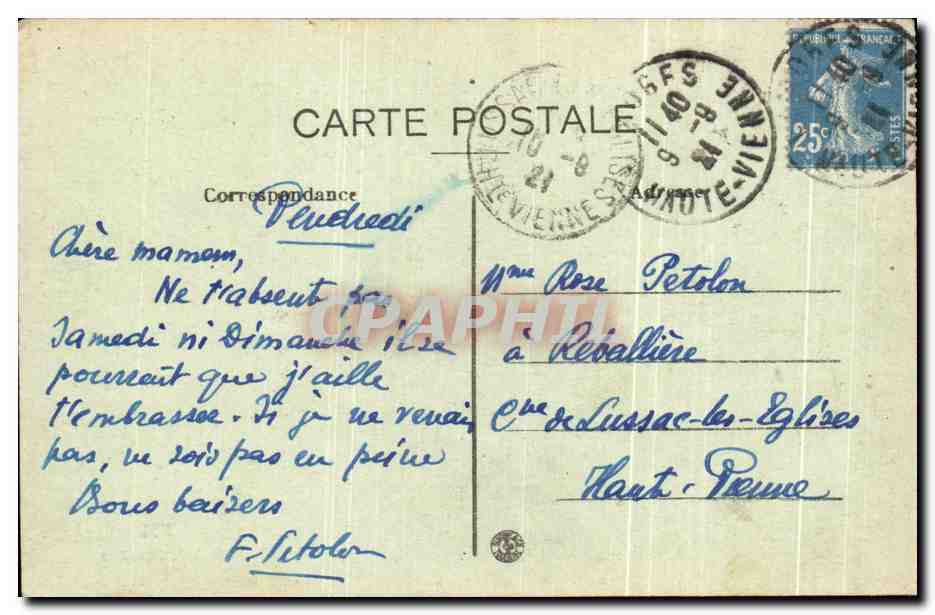 CARTE POSTALE
Correspondance
Adresse
RÉPUBLIQUE FRANÇAISE
25c
POSTES
HAUTE-VIENNE
11 40
9 -8
21
10 -8
21
HTE VIENNE
Vendredi
Chère maman,
Ne t'absente pas
Samedi ni Dimanche il se
pourrait que j'aille
t'embrasser. Si je ne venais
pas, ne sois pas en peine
Bons baisers
F. Petolon
Mme Rose Petolon
à Réballière
Cne de Lussac-les-Eglises
Haute-Vienne
CPAPHIL